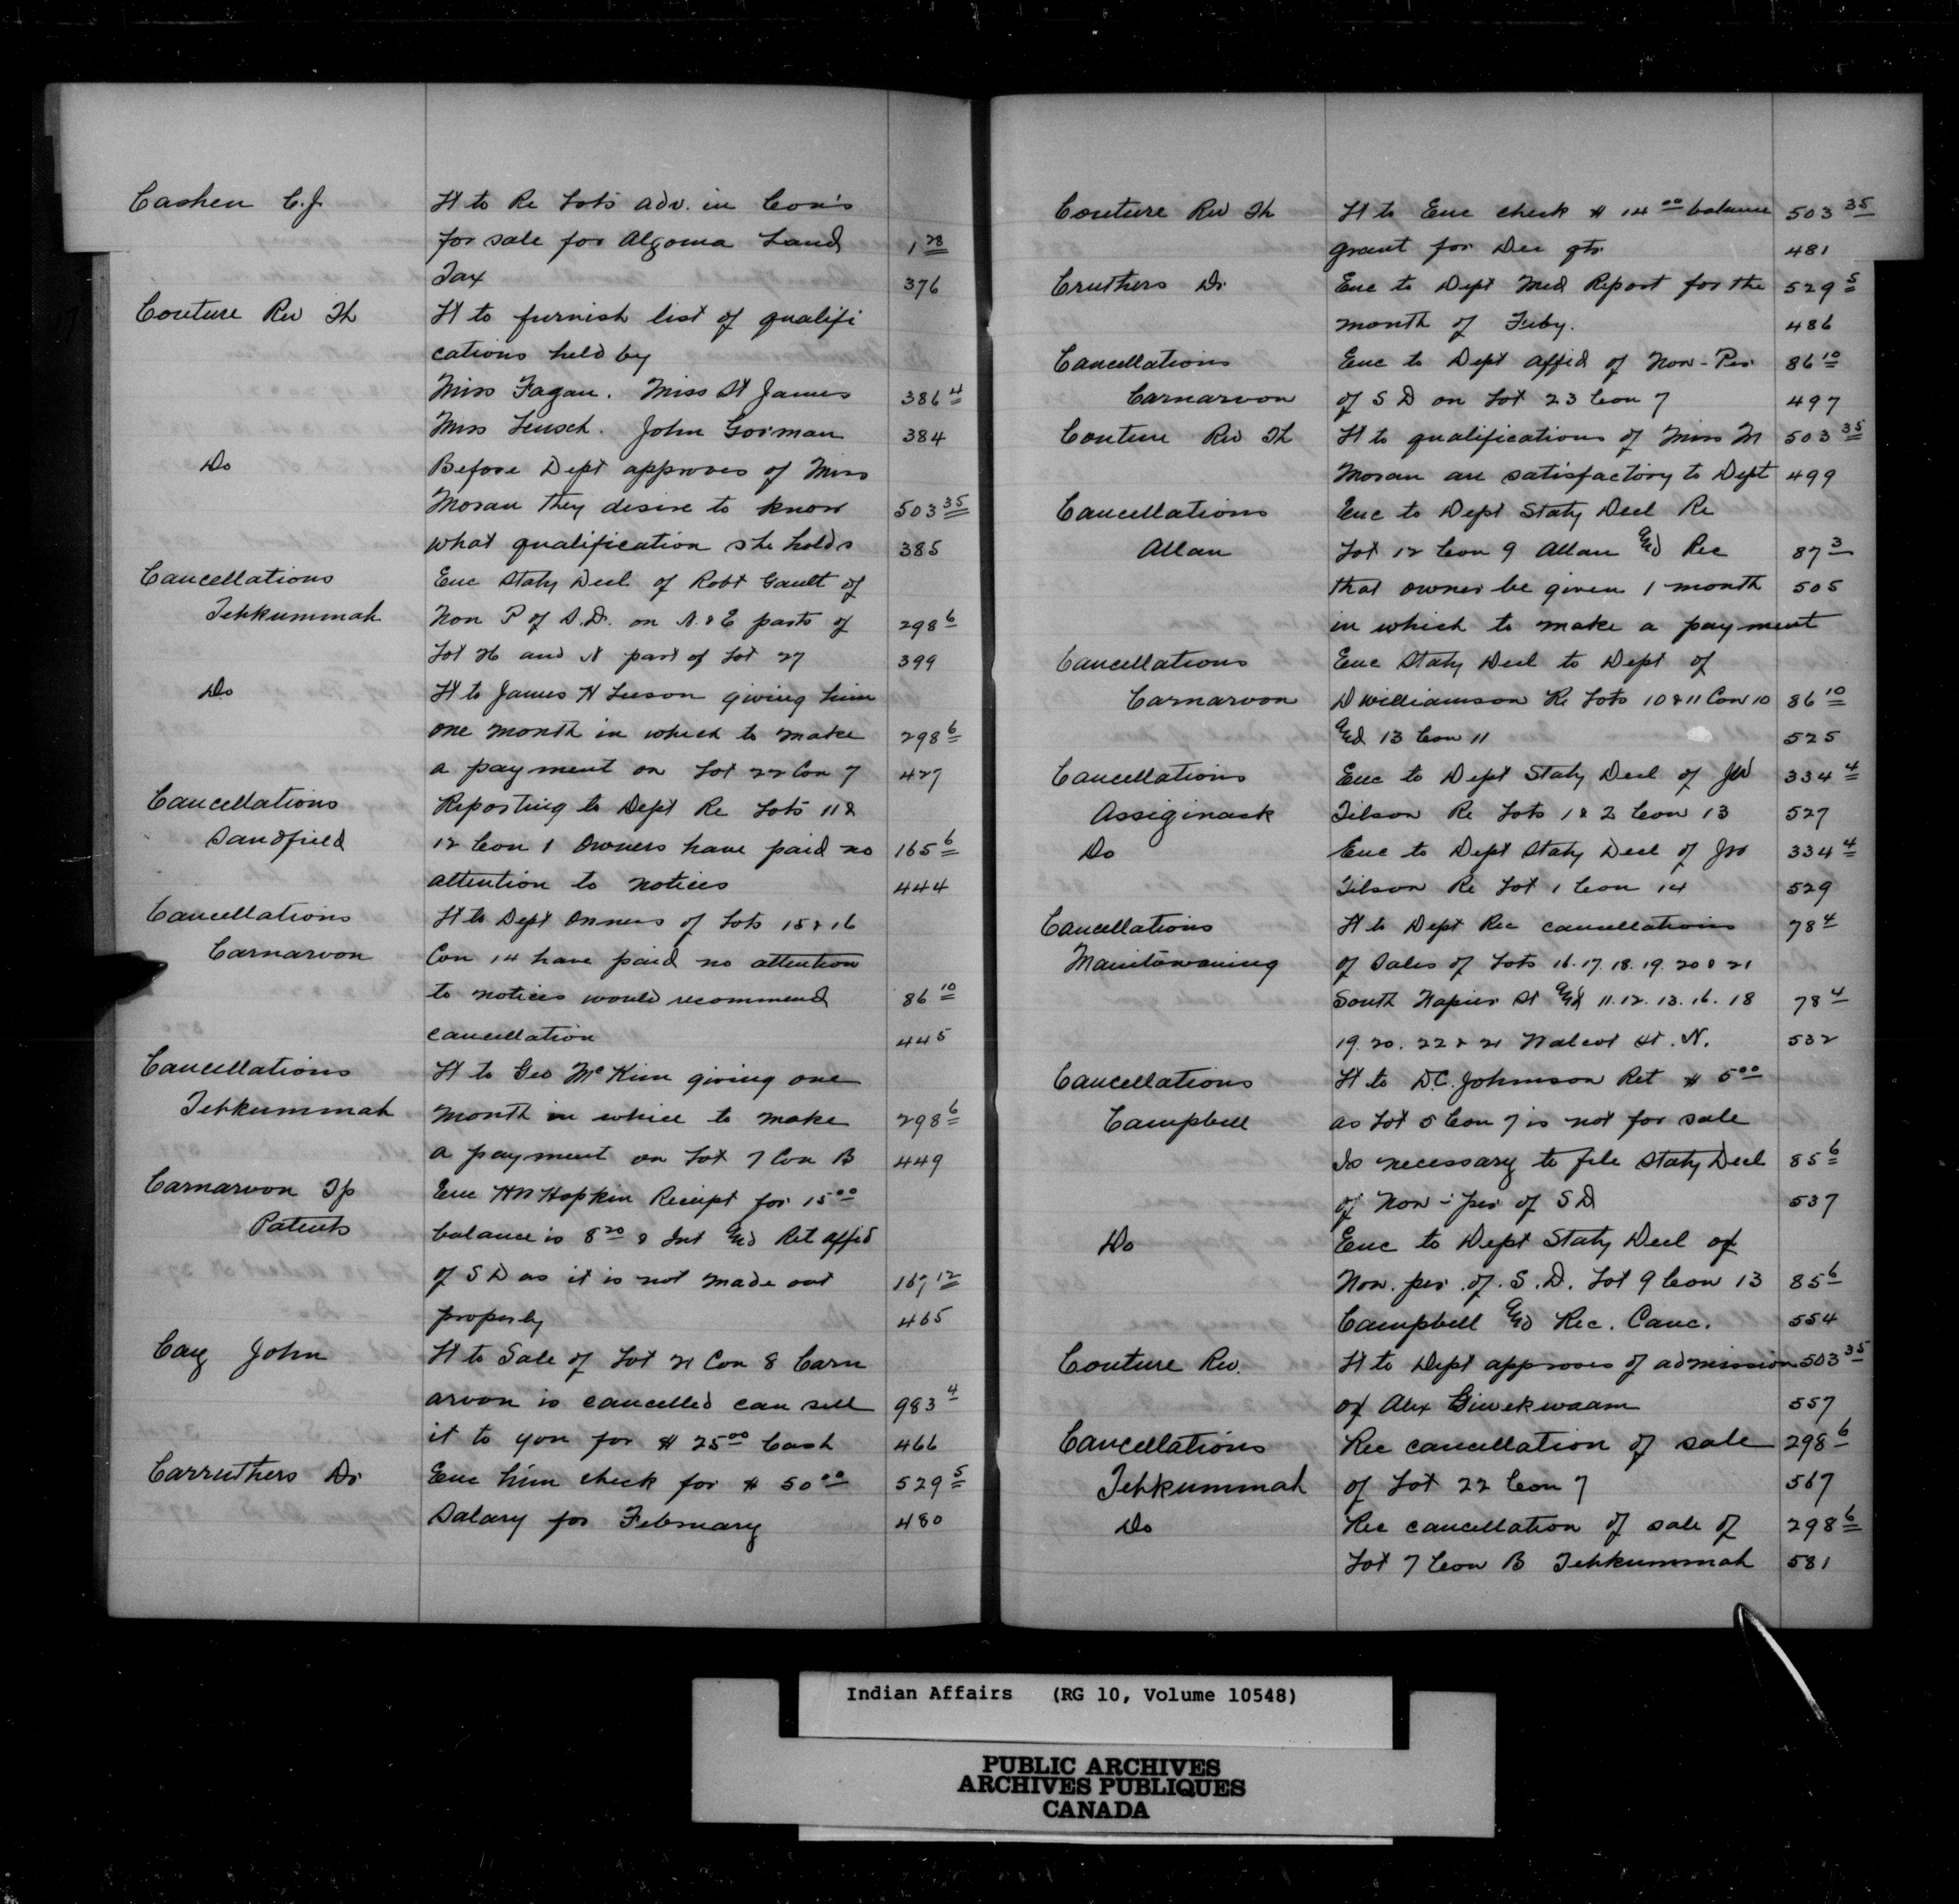 Cashen C.J. Lt to Re Lots adv. in Con's
for sale for Algoma Land 1 28
Tax 376
Couture Rev Th Lt to furnish list of qualifi
cations held by
Miss Fagan. Miss St James 386 4
Miss Leusch. John Gorman 384
Do Before Dept approves of Miss
Moran they desire to know 503 35
what qualification she holds 385
Cancellations Enc Staty Decl of Robt Gault of
Tehkummah Non P of S.D. on N. & E parts of 298 6
Lot 26 and N part of Lot 27 399
Do Lt to James H Leeson giving him
one month in which to make 298 6
a payment on Lot 22 Con 7 427
Cancellations Reporting to Dept Re Lots 11 &
Sandfield 12 Con 1 Owners have paid no 165 6
attention to notices 444
Cancellations Lt to Dept Owners of Lots 15 & 16
Carnarvon Con 14 have paid no attention
to notices would recommend 86 10
cancellation 445
Cancellations Lt to Geo McKim giving one
Tehkummah month in which to make 298 6
a payment on Lot 7 Con B 449
Carnarvon Tp Enc HN Hopkin Receipt for 15 00
Patents balance is 8 20 & Int and Ret affid
of S D as it is not made out 167 12
properly 465
Cay John Lt to Sale of Lot 21 Con 8 Carn
arvon is cancelled can sell 983 4
it to you for $ 25 00 Cash 466
Carruthers Dr Enc him check for $ 50 00 529 5
Salary for February 480
Couture Rev Th Lt to Enc check $ 14 00 balance 503 35
grant for Dec qtr 481
Cruthers Dr Enc to Dept Med Report for the 529 5
month of Feby. 486
Cancellations Enc to Dept affid of Non-Per 86 10
Carnarvon of S D on Lot 23 Con 7 497
Couture Rev Th Lt to qualifications of Miss M 503 35
Moran are satisfactory to Dept 499
Cancellations Enc to Dept Staty Decl Re
Allan Lot 12 Con 9 Allan and Rec 87 3
that owner be given 1 month 505
in which to make a payment
Cancellations Enc Staty Decl to Dept of
Carnarvon D Williamson Re Lots 10 & 11 Con 10 86 10
and 13 Con 11 525
Cancellations Enc to Dept Staty Decl of JW 334 4
Assiginack Tilson Re Lots 1 & 2 Con 13 527
Do Enc to Dept Staty Decl of JW 334 4
Tilson Re Lot 1 Con 14 529
Cancellations Lt to Dept Rec cancellations 78 4
Manitowaning of Sales of Lots 16. 17. 18. 19. 20 & 21
South Napier St and 11. 12. 13. 16. 18 78 4
19. 20. 22 & 21 Walcot St. N. 532
Cancellations Lt to D.C. Johnson Ret $ 5 00
Campbell as Lot 5 Con 7 is not for sale
Is necessary to file Staty Decl 85 6
of Non-per of S D 537
Do Enc to Dept Staty Decl of
Non. per. of. S. D. Lot 9 Con 13 85 6
Campbell and Rec. Canc. 554
Couture Rev. Lt to Dept approves of admission 503 35
of Alex Giwekwaam 557
Cancellations Rec cancellation of sale 298 6
Tehkummah of Lot 22 Con 7 567
Do Rec cancellation of sale of 298 6
Lot 7 Con B Tehkummah 581
Indian Affairs (RG 10, Volume 10548)
PUBLIC ARCHIVES
ARCHIVES PUBLIQUES
CANADA